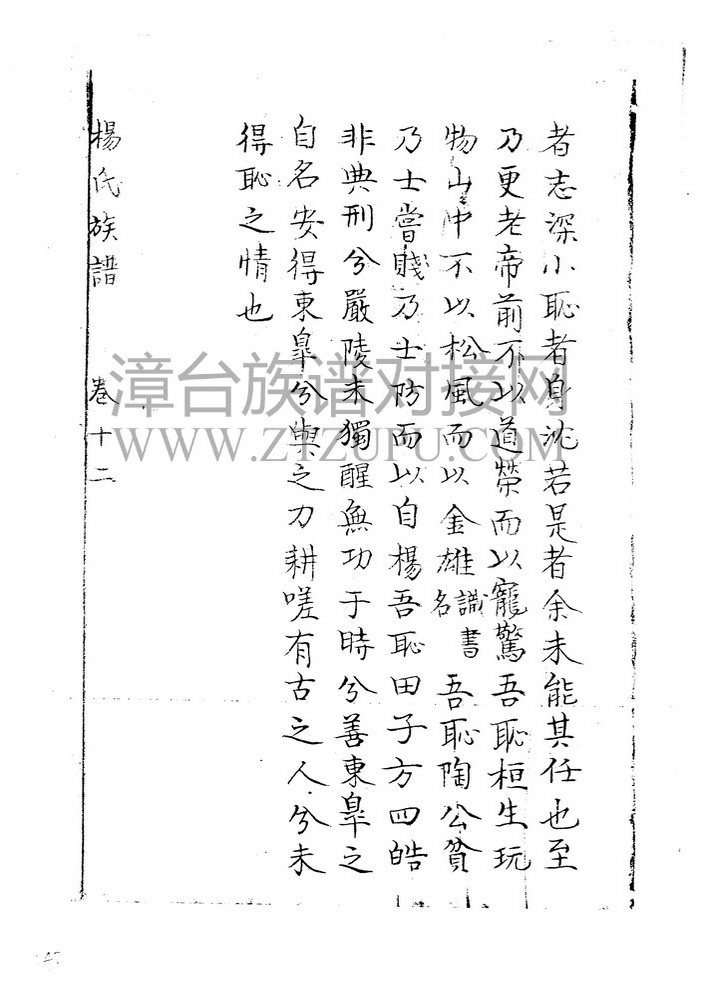 者志深小恥者身沈若是者余未能其任也至
乃更老帝前不以道榮而以寵驚吾恥桓生玩
物山中不以松風而以金雄識書名吾恥陶公貧
乃士嘗賤乃士防而以自楊吾恥田子方四皓
非典刑兮嚴陵未獨醒無功于時兮善東皐之
自名安得東皐兮與之力耕嗟有古之人兮未
得恥之情也
楊氏族譜 卷十二
漳台族谱对接网
WWW.ZTZUPU.COM